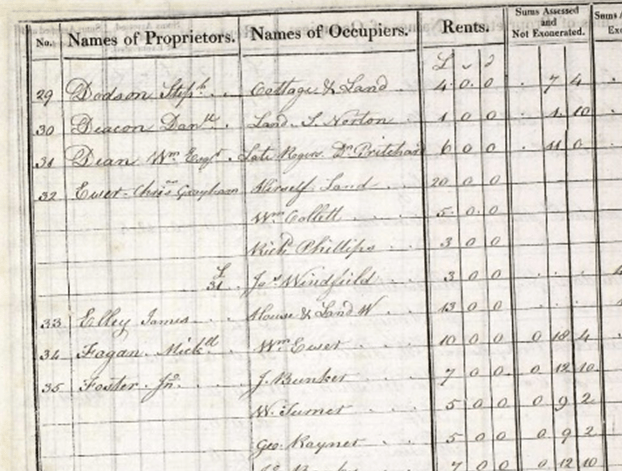 No. Names of Proprietors. Names of Occupiers. Rents. Sums Assessed and Not Exonerated. Sums A
£ s d
29 Dodson Steph. Cottage & Land 4. 0. 0 . 7 4
30 Deacon Danll. Land S. Norton 1 0 0 . 1. 10
31 Dean Wm. Esqr. Late Rogers Dr Pritchard 6 0 0 . 11 0
32 Ewer Grayham Herself Land 20 0 0
Wm Collett 5 0 0
Michl Phillips 3 0 0
£31. Jas Windfield 3 0 0
33 Elley James House & Land W 13 0 0
34 Fagan Michll Wm Ewer 10 0 0 0 18 4
35 Foster Jn. J. Bunker 7 0 0 0 12 10
W. Turner 5 0 0 0 9 2
Geo. Rayner 5 0 0 0 9 2
7 0 0 0 12 10